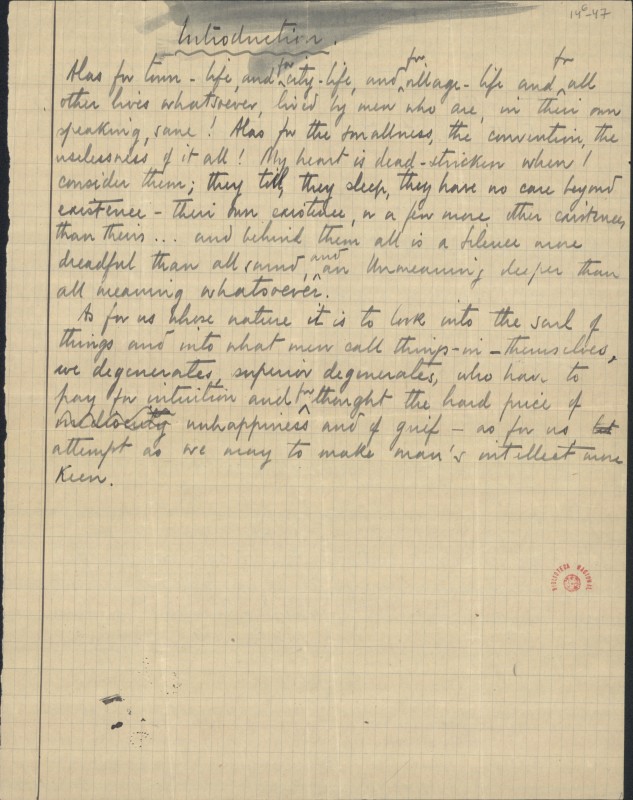 14⁶-47
Introduction.
Alas for town-life, and for city-life, and for village-life and for all
other lives whatsoever, lived by men who are, in their own
speaking, sane! Alas for the smallness, the convention, the
uselessness of it all! My heart is dead-stricken when I
consider them; they till, they sleep, they have no care beyond
existence - their own existence, or a few more other existences
than theirs... and behind them all is a Silence more
dreadful than all sound, and an Unmeaning deeper than
all meaning whatsoever.
As for us whose nature it is to look into the soul of
things and into what men call things-in-themselves,
we degenerates, superior degenerates, who have to
pay for intuition and for thought the hard price of
mediocrity unhappiness and of grief - as for us let
attempt as we may to make man's intellect more
keen.
BIBLIOTECA NACIONAL